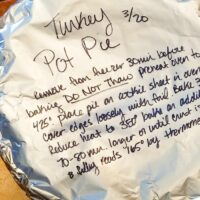 Turkey 3/20
Pot Pie
Remove from freezer 30 min before
baking. DO NOT Thaw. Preheat oven to
425°. Place pie on cookie sheet in oven
cover edges loosely with foil. Bake
Reduce heat to 350° bake an additional
70-80 min longer or until crust is
& filling reads 165° by thermometer